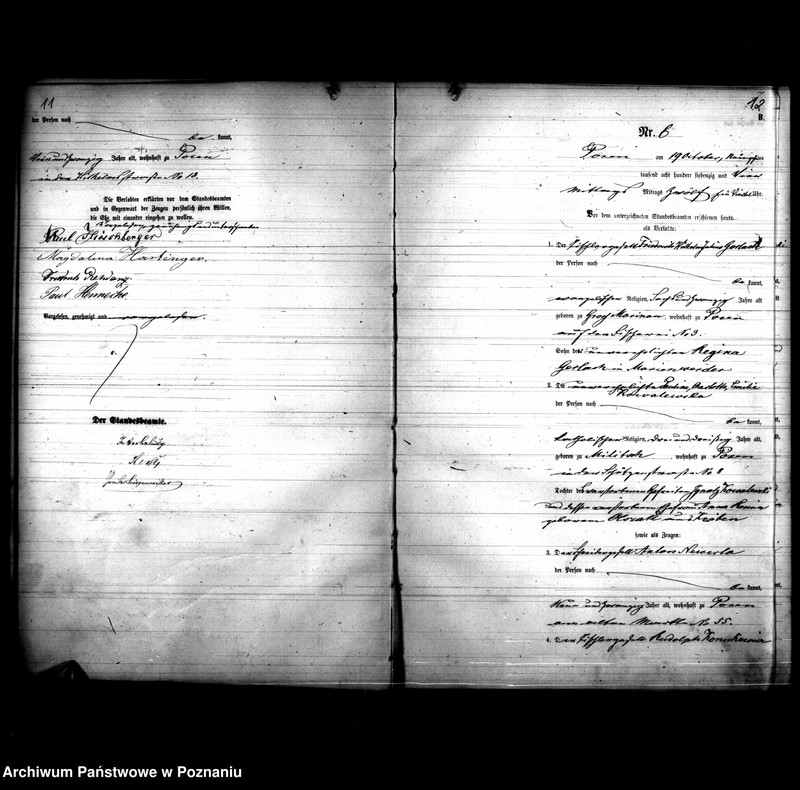 11
der Person nach
be kannt,
Jahre alt, wohnhaft zu Posen
in der No 18.
Die Verlobten erklärten vor dem Standesbeamten
und in Gegenwart der Zeugen persönlich ihren Willen,
die Ehe mit einander eingehen zu wollen.
Vorgelesen, genehmigt und unterschrieben
Paul Hirschberger
Magdalena Hartinger.
Friedrich
Paul Hennecke
Vorgelesen, genehmigt und vorgelesen.
Der Standesbeamte.
In Vertretung
12
B.
Nr. 6
Posen am 19 October,
tausend acht hundert siebenzig und Vier
Mittags Mittags Zwölf ein Uhr.
Vor dem unterzeichneten Standesbeamten erschienen heute
als Verlobte:
1. Der Tischlergesell Friedrich Wilhelm Julius Gerlach
der Person nach
be kannt,
evangelischer Religion, Sechs und zwanzig Jahre alt
geboren zu Groß wohnhaft zu Posen
auf der Fischerei No 3.
Sohn der unverehelichten Regina
Gerlach in Marienwerder
2. Die unverehelichte Pauline, Emilie
Kowalewska
der Person nach
be kannt,
katholischer Religion, drei und dreißig Jahre alt,
geboren zu Militsch, wohnhaft zu Posen
in der Schützenstraße No 8
Tochter des verstorbenen Gefreiten Ignatz Kowalewski
und dessen verstorbenen Ehefrau Anna Maria
geborenen und
sowie als Zeugen:
3. Der Anton
der Person nach
be kannt,
Neun und zwanzig Jahre alt, wohnhaft zu Posen
am alten Markte No 55.
4. Der Tischlergesell Rudolph
Archiwum Państwowe w Poznaniu